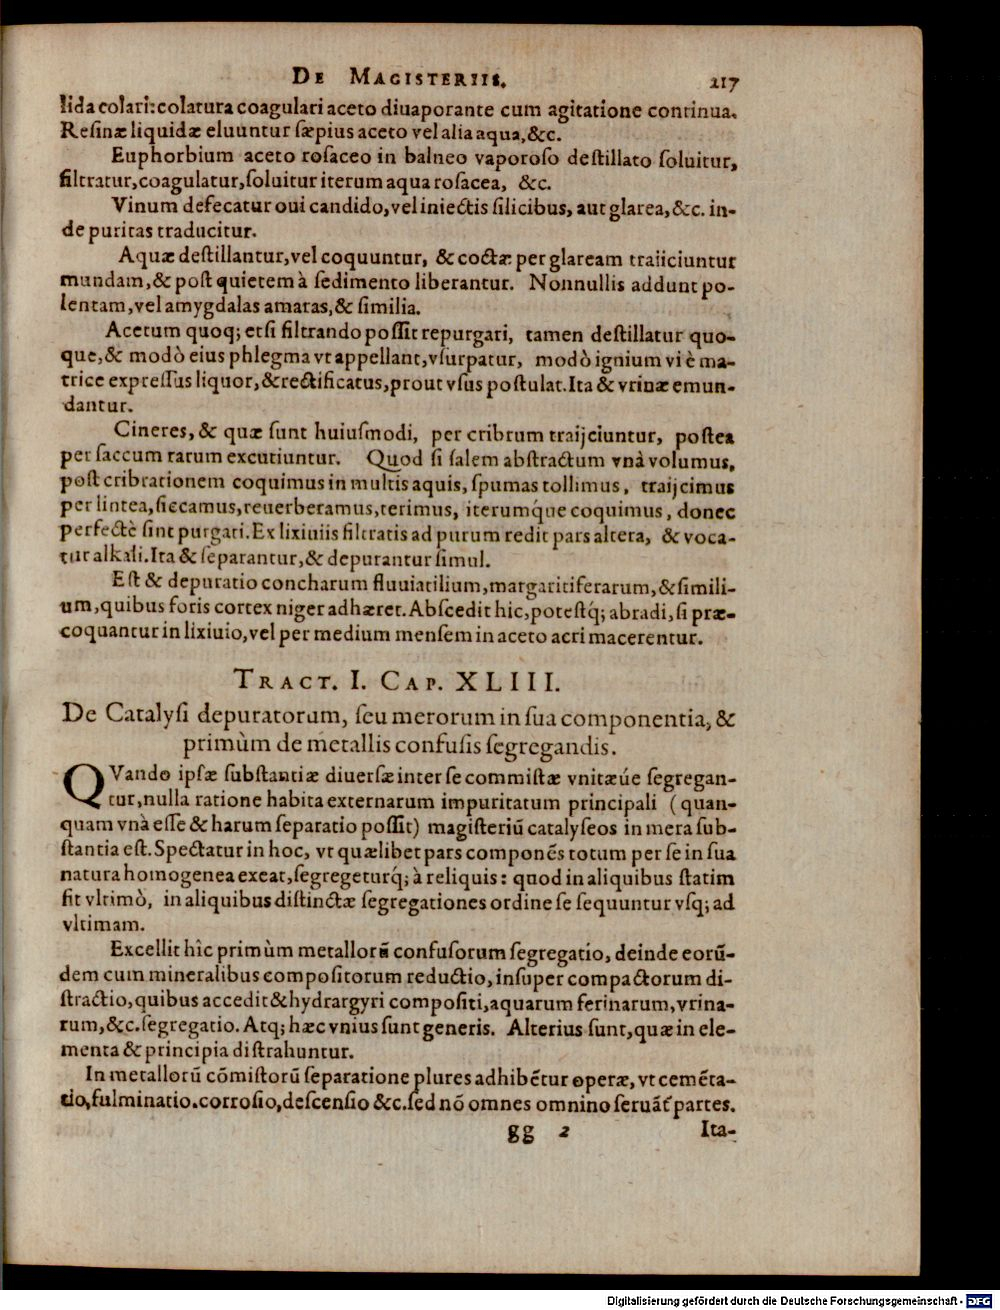 De Magisteriis. 217
lida colari: colatura coagulari aceto diuaporante cum agitatione continua.
Resinæ liquidæ eluuntur sæpius aceto vel alia aqua, &c.
Euphorbium aceto rosaceo in balneo vaporoso destillato soluitur,
filtratur, coagulatur, soluitur iterum aqua rosacea, &c.
Vinum defecatur oui candido, vel iniectis silicibus, aut glarea, &c. in-
de puritas traducitur.
Aquæ destillantur, vel coquuntur, & coctæ per glaream traiiciuntur
mundam, & post quietem à sedimento liberantur. Nonnullis addunt po-
lentam, vel amygdalas amaras, & similia.
Acetum quoq; etsi filtrando possit repurgari, tamen destillatur quo-
que, & modò eius phlegma vt appellant, vsurpatur, modò ignium vi è ma-
trice expressus liquor, & rectificatus, prout vsus postulat. Ita & vrinæ emun-
dantur.
Cineres, & quæ sunt huiusmodi, per cribrum traijciuntur, postea
per saccum rarum excutiuntur. Quod si salem abstractum vnà volumus,
post cribrationem coquimus in multis aquis, spumas tollimus, traijcimus
per lintea, siccamus, reuerberamus, terimus, iterumq́ue coquimus, donec
perfectè sint purgati. Ex lixiuiis filtratis ad purum redit pars altera, & voca-
tur alkali. Ita & separantur, & depurantur simul.
Est & depuratio concharum fluuiatilium, margaritiferarum, & simili-
um, quibus foris cortex niger adhæret. Abscedit hic, potestq; abradi, si præ-
coquantur in lixiuio, vel per medium mensem in aceto acri macerentur.
Tract. I. Cap. XLIII.
De Catalysi depuratorum, seu merorum in sua componentia, &
primùm de metallis confusis segregandis.
QVando ipsæ substantiæ diuersæ inter se commistæ vnitæúe segregan-
tur, nulla ratione habita externarum impuritatum principali (quan-
quam vnà esse & harum separatio possit) magisteriū catalyseos in mera sub-
stantia est. Spectatur in hoc, vt quælibet pars componẽs totum per se in sua
natura homogenea exeat, segregeturq; à reliquis: quod in aliquibus statim
fit vltimò, in aliquibus distinctæ segregationes ordine se sequuntur vsq; ad
vltimam.
Excellit hîc primùm metallorū confusorum segregatio, deinde eorū-
dem cum mineralibus compositorum reductio, insuper compactorum di-
stractio, quibus accedit & hydrargyri compositi, aquarum ferinarum, vrina-
rum, &c. segregatio. Atq; hæc vnius sunt generis. Alterius sunt, quæ in ele-
menta & principia distrahuntur.
In metallorū cōmistorū separatione plures adhibẽtur operæ, vt cemẽta-
tio, fulminatio. corrosio, descensio &c. sed nō omnes omnino seruāt partes.
gg 2 Ita-
Digitalisierung gefördert durch die Deutsche Forschungsgemeinschaft - DFG